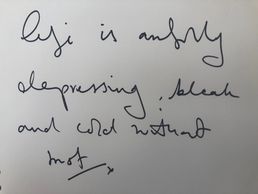 life is awfully
depressing, bleak
and cold without